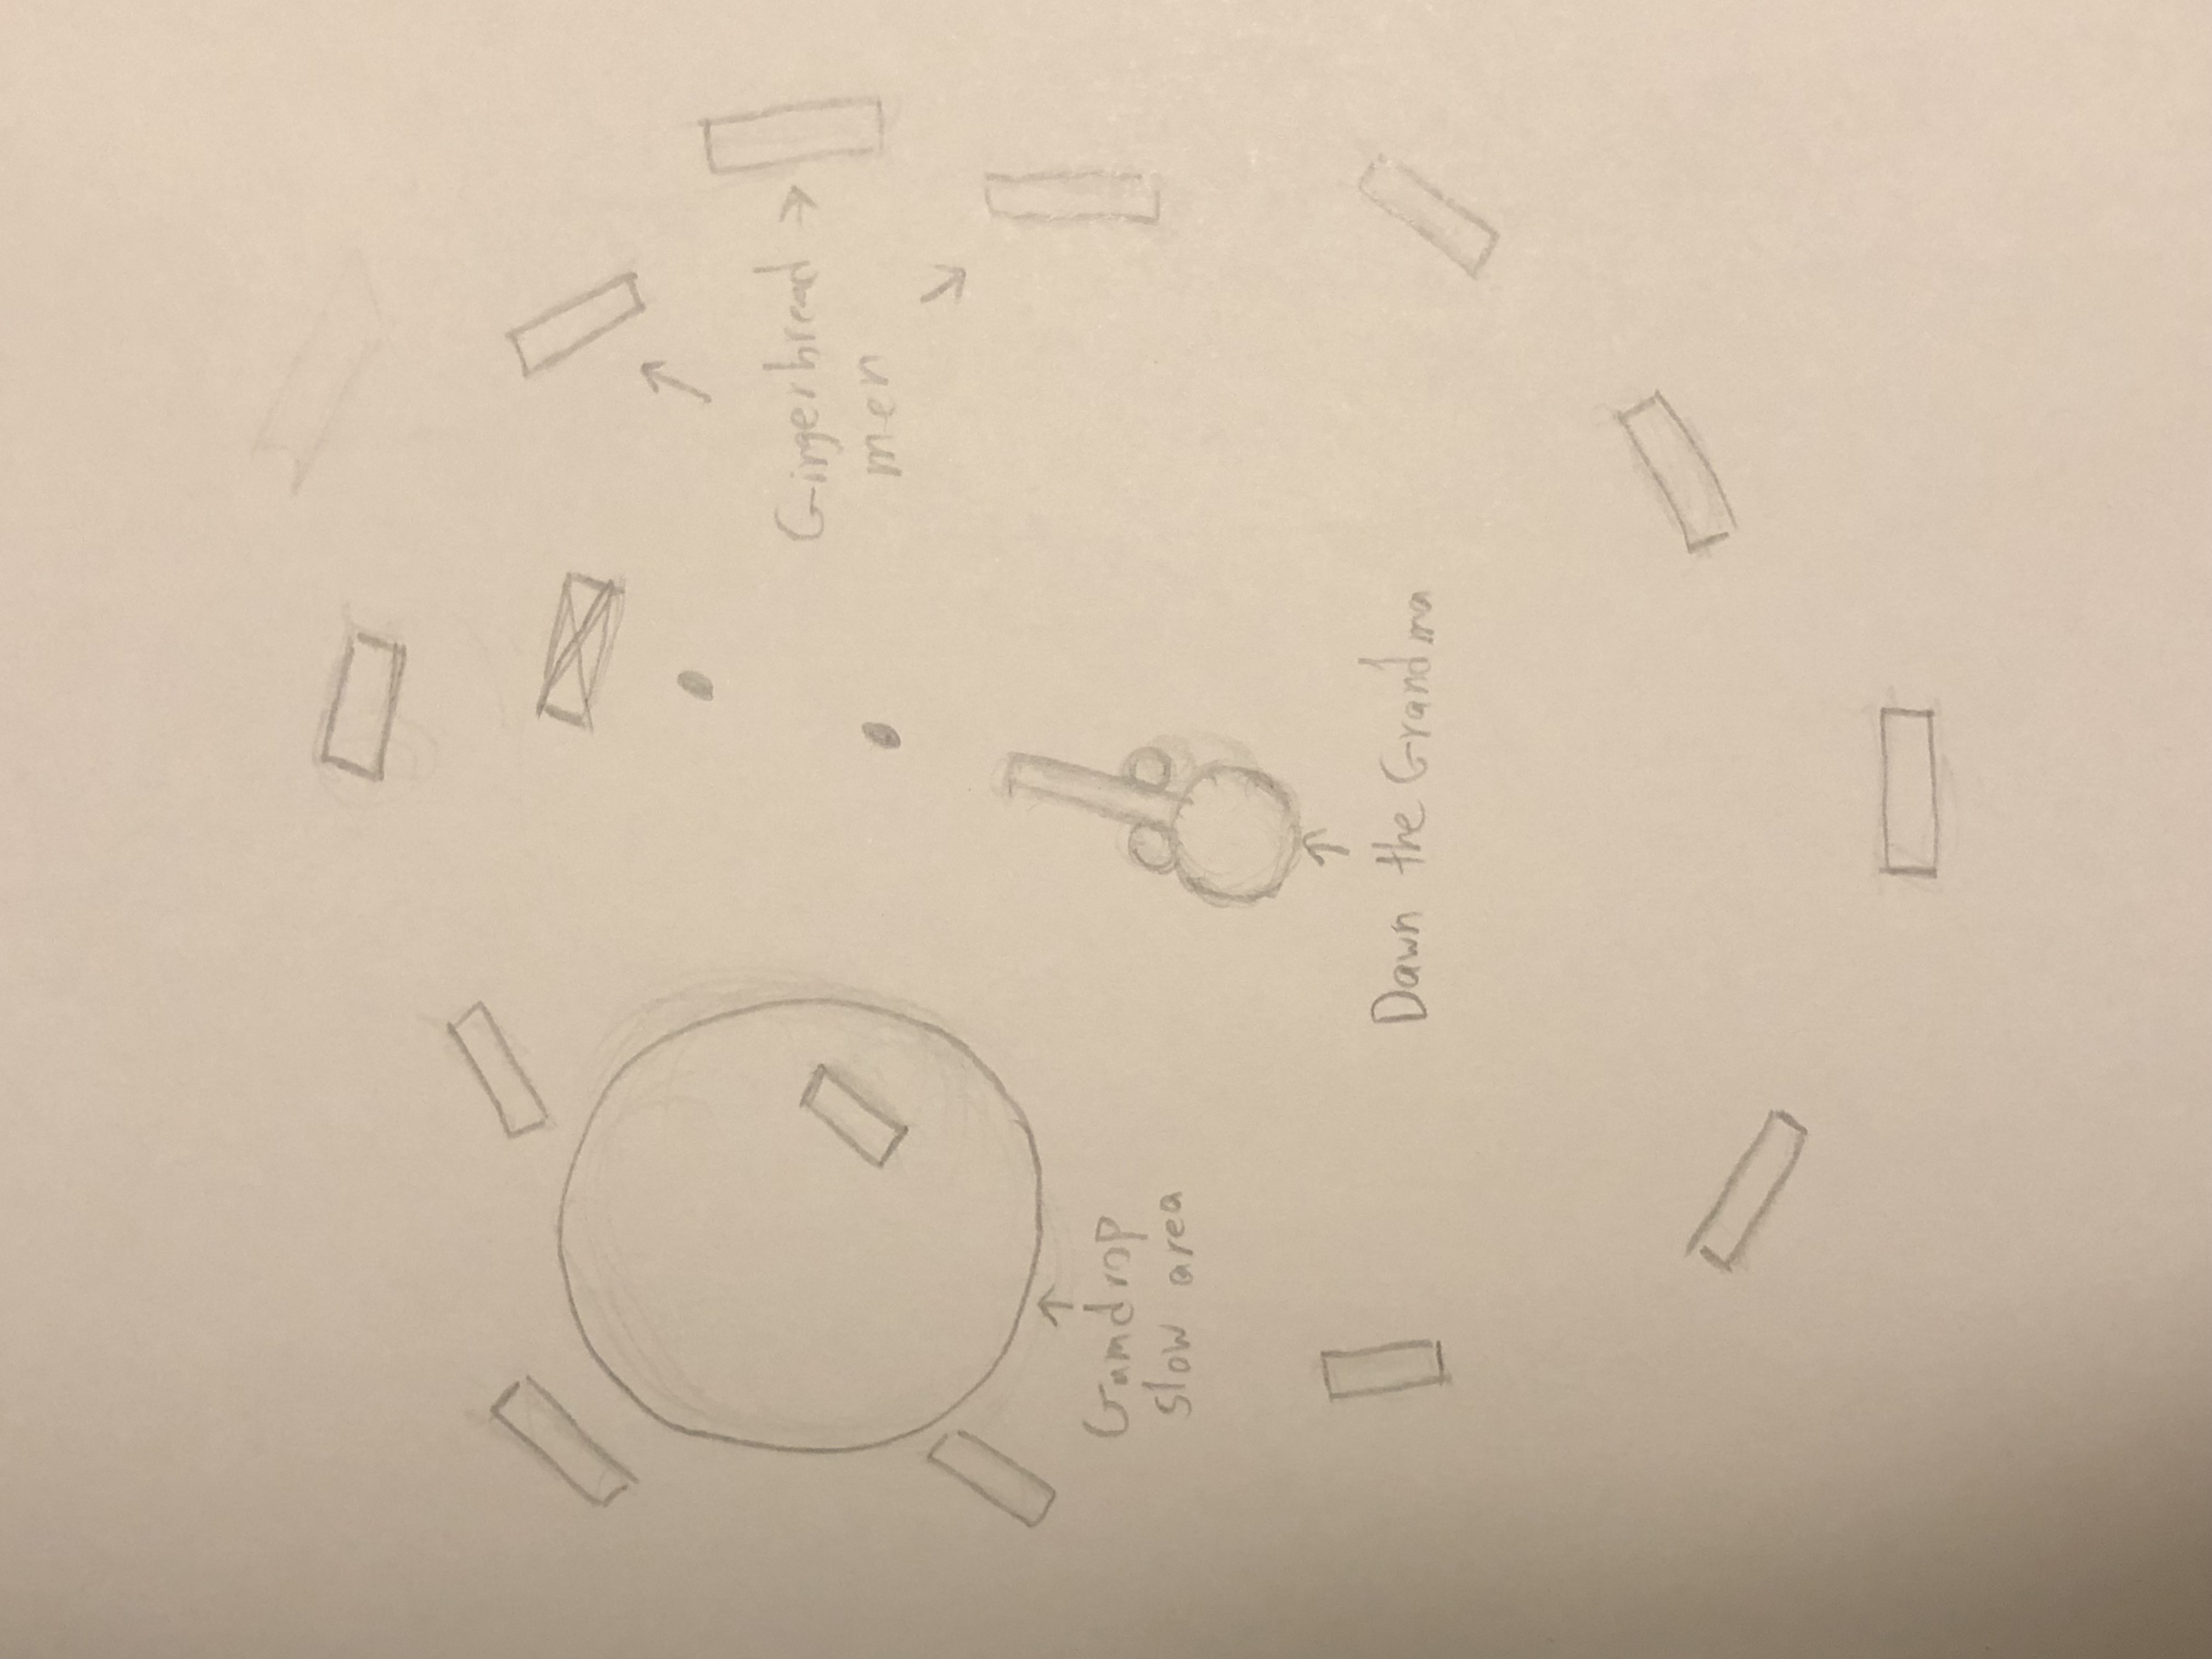 Gingerbread
men
Gumdrop
slow area
Dawn the Grandma